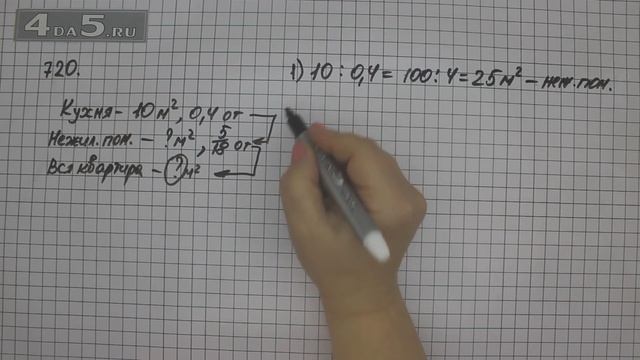 4DA5.RU
720.
1) 10 : 0,4 = 100 : 4 = 25 м² – неж. пом.
Кухня – 10 м², 0,4 от
Нежил. пом. – ? м², 5/18 от
Вся квартира – ? м²